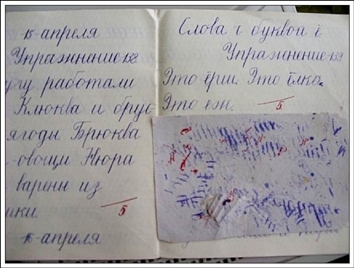 15 апреля
Упражнение 128
работали
Клюква и брус
ягоды. Брюква
овощи. Нюра
варили из
5
15 апреля
Слова с буквой ё
Упражнение 129
Это ёрш. Это ёлка.
Это ёж.
5